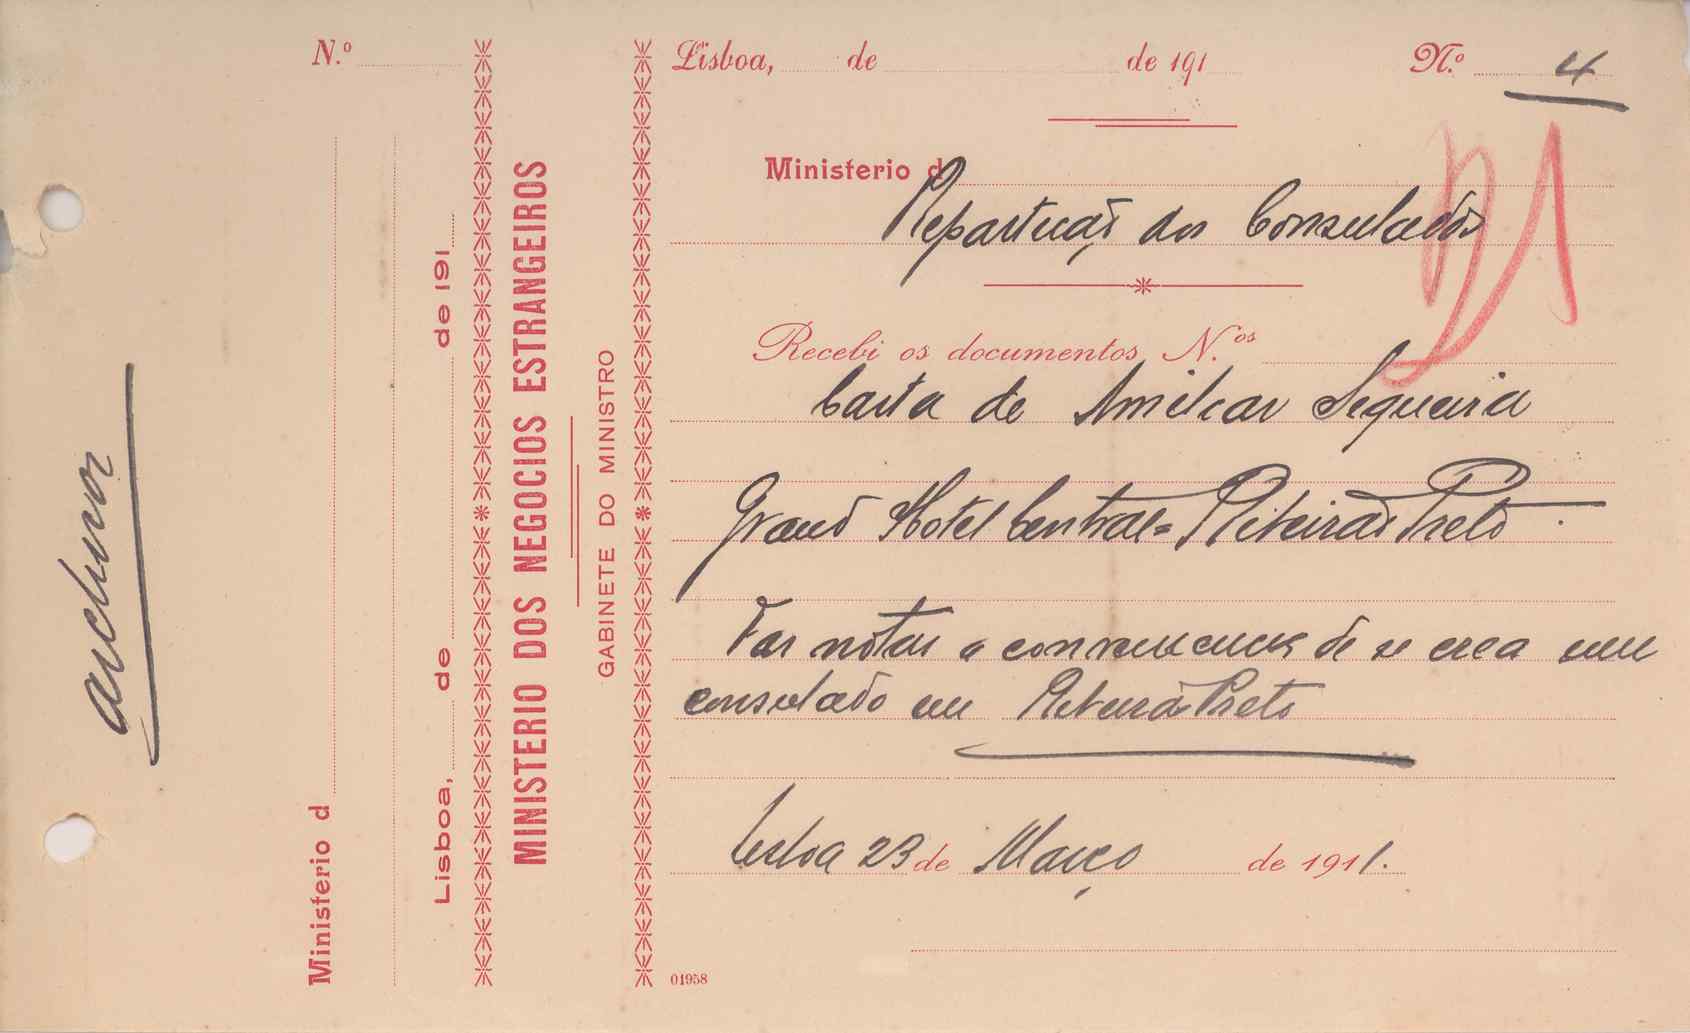 archivar
N.º
Ministerio d
Lisboa, de de 191
MINISTERIO DOS NEGOCIOS ESTRANGEIROS
GABINETE DO MINISTRO
Lisboa, de de 191 N.º 4
Ministerio d
Repartição dos Consulados
Recebi os documentos N.ºs
Carta de Amilcar Sequeira
Grand Hotel Central = Ribeirão Preto.
Faz notar a conveniencia de se crear um
consulado em Ribeirão Preto
Lisboa 23 de Março de 1911.
01958